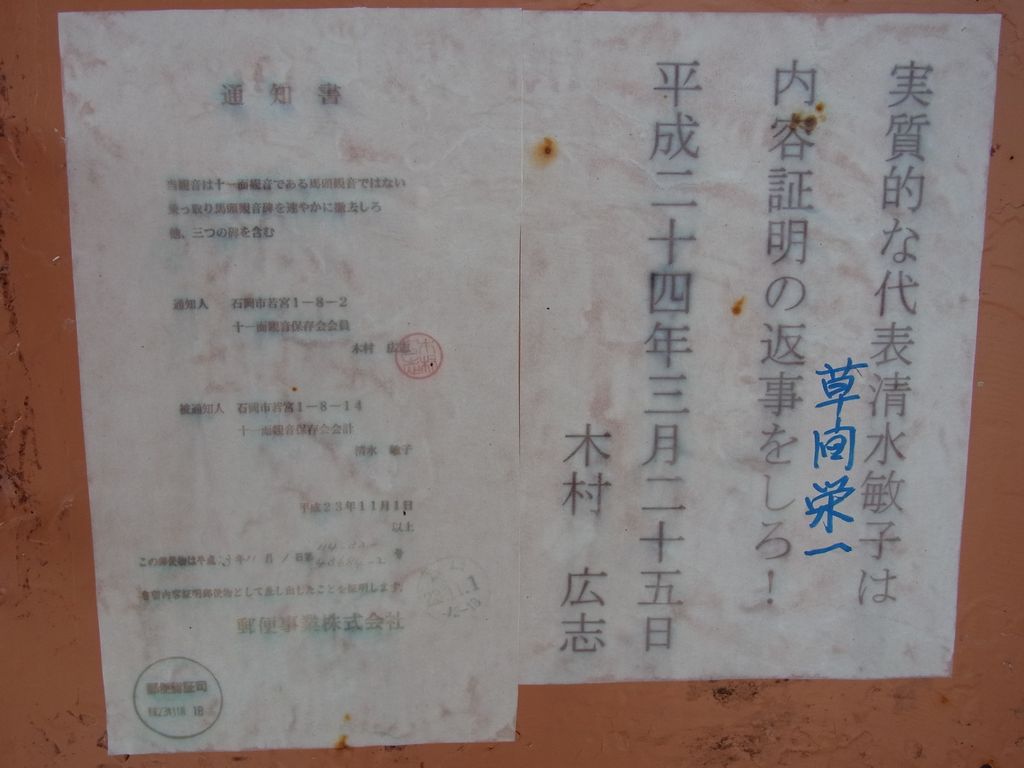 実質的な代表清水敏子は
草间栄一
内容証明の返事をしろ！
平成二十四年三月二十五日
木村 広志
通知書
当観音は十一面観音である馬頭観音ではない
乗っ取り馬頭観音碑を速やかに撤去しろ
他、三つの碑を含む
通知人 石岡市若宮1－8－2
十一面観音保存会会員
木村 広志
被通知人 石岡市若宮1－8－14
十一面観音保存会会計
清水 敏子
平成23年11月1日
以上
この郵便物は平成23年11月1日第
号
書留内容証明郵便物として差し出したことを証明します。
郵便事業株式会社